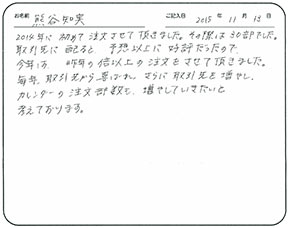 お名前 熊谷知実 ご記入日 2015年 11月 13日
2014年に 初めて 注文させて 頂きました。その際は 30部でした。
取引先に 配ると、予想以上に 好評だったので、
今年は、昨年の倍以上の 注文を させて 頂きました。
毎年、取引先から喜ばれ、さらに 取引先を 増やし、
カレンダーの 注文部数も 増やしていきたいと
考えております。